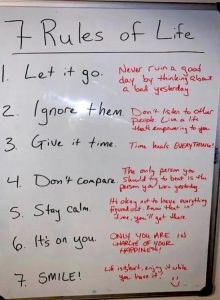 7 Rules of Life
1. Let it go.
Never ruin a good
day by thinking about
a bad yesterday.
2. Ignore them.
Don't listen to other
people. Live a life
that's empowering to you
3. Give it time.
Time heals EVERYTHING!
4. Don't compare.
The only person you
should try to beat is the
person you were yesterday.
5. Stay calm.
It's okay not to have everything
figured out. Know that in
time, you'll get there.
6. It's on you.
ONLY YOU ARE IN
CHARGE OF YOUR
HAPPINESS!
7. SMILE!
Life is short, enjoy it while
you have it!